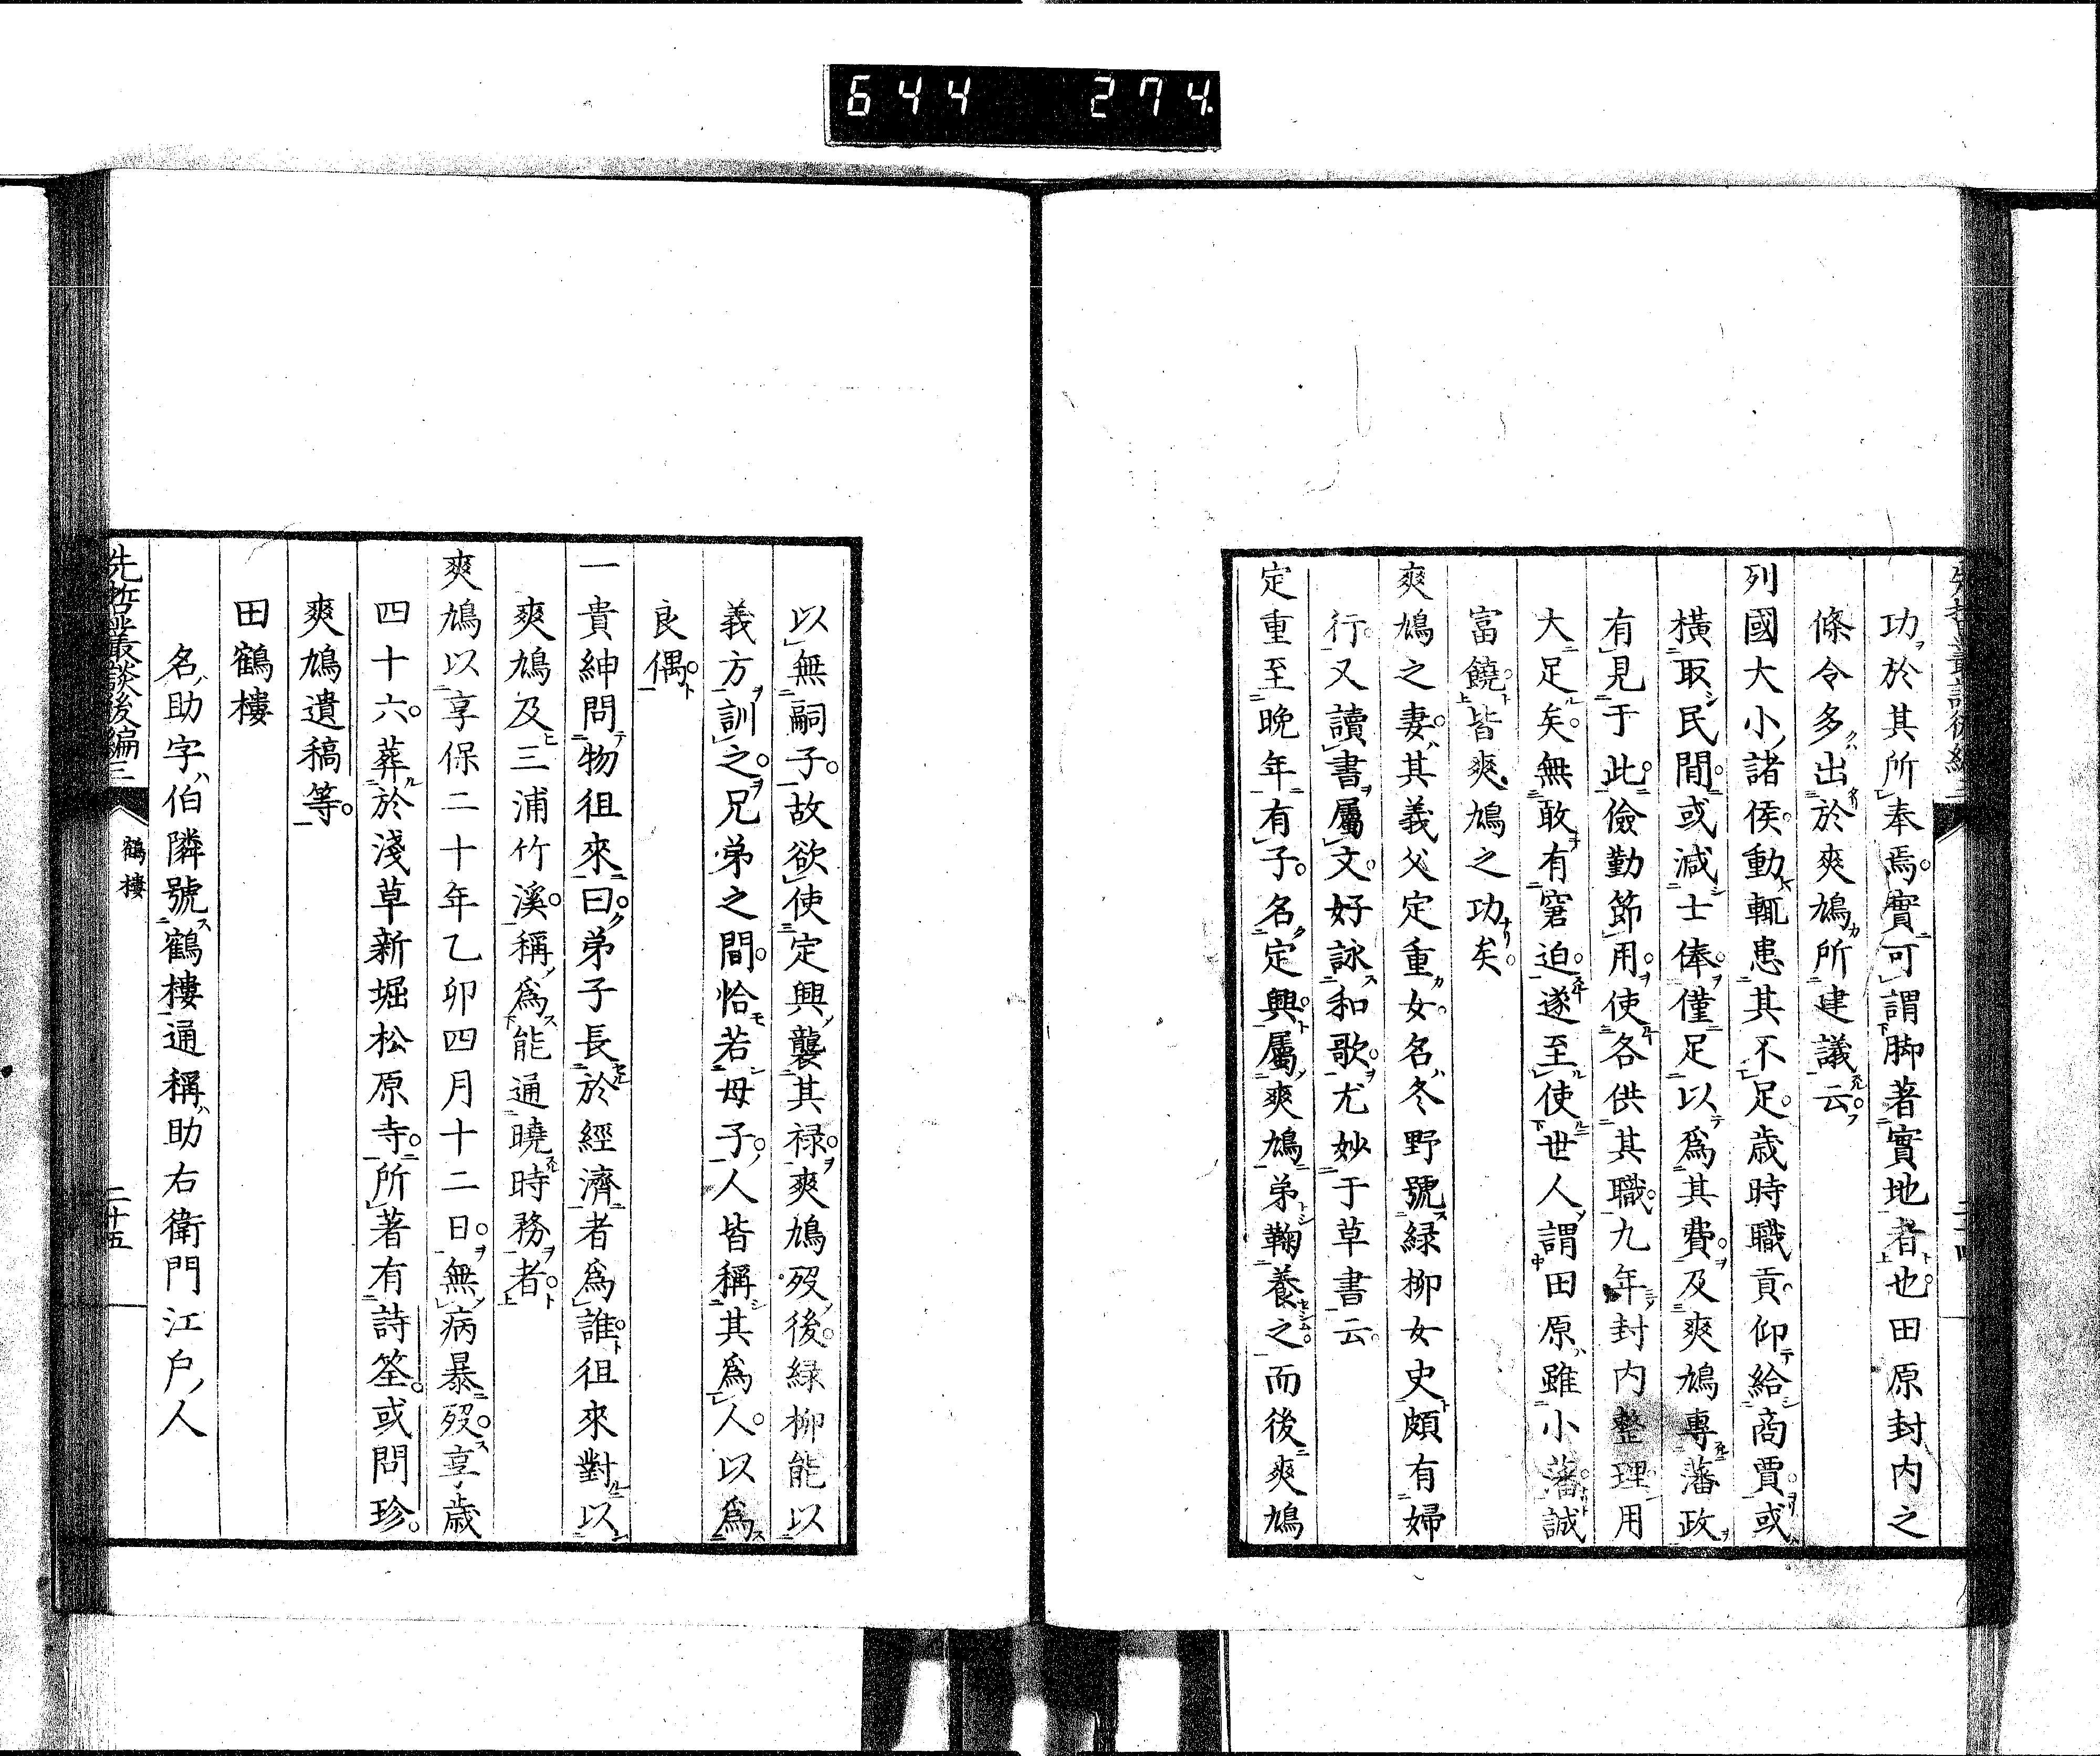 644 274
先哲叢談後編三
功於其所奉焉實可謂脚著實地者也田原封内之
條令多出於爽鳩所建議云
列國大小諸侯動輒患其不足歳時職貢仰給商賈或
橫取民間或減士俸僅足以爲其費及爽鳩專藩政
有見于此儉勤節用使各供其職九年封内整理用
大足矣無敢有窘迫遂至使世人謂田原雖小藩誠
富饒皆爽鳩之功矣
爽鳩之妻其義父定重女名冬野號緑柳女史頗有婦
行又讀書屬文好詠和歌尤妙于草書云
定重至晩年有子名定興屬爽鳩弟鞠養之而後爽鳩
以無嗣子故欲使定興襲其禄爽鳩歿後緑柳能以
義方訓之兄弟之間恰若母子人皆稱其爲人以爲
良偶
一貴紳問物徂來曰弟子長於經濟者爲誰徂來對以
爽鳩及三浦竹溪稱爲能通曉時務者
爽鳩以享保二十年乙卯四月十二日無病暴歿享歳
四十六葬於淺草新堀松原寺所著有詩筌或問珍
爽鳩遺稿等
田鶴樓
名助字伯隣號鶴樓通稱助右衛門江戸人
先哲叢談後編三
鶴樓
二十五